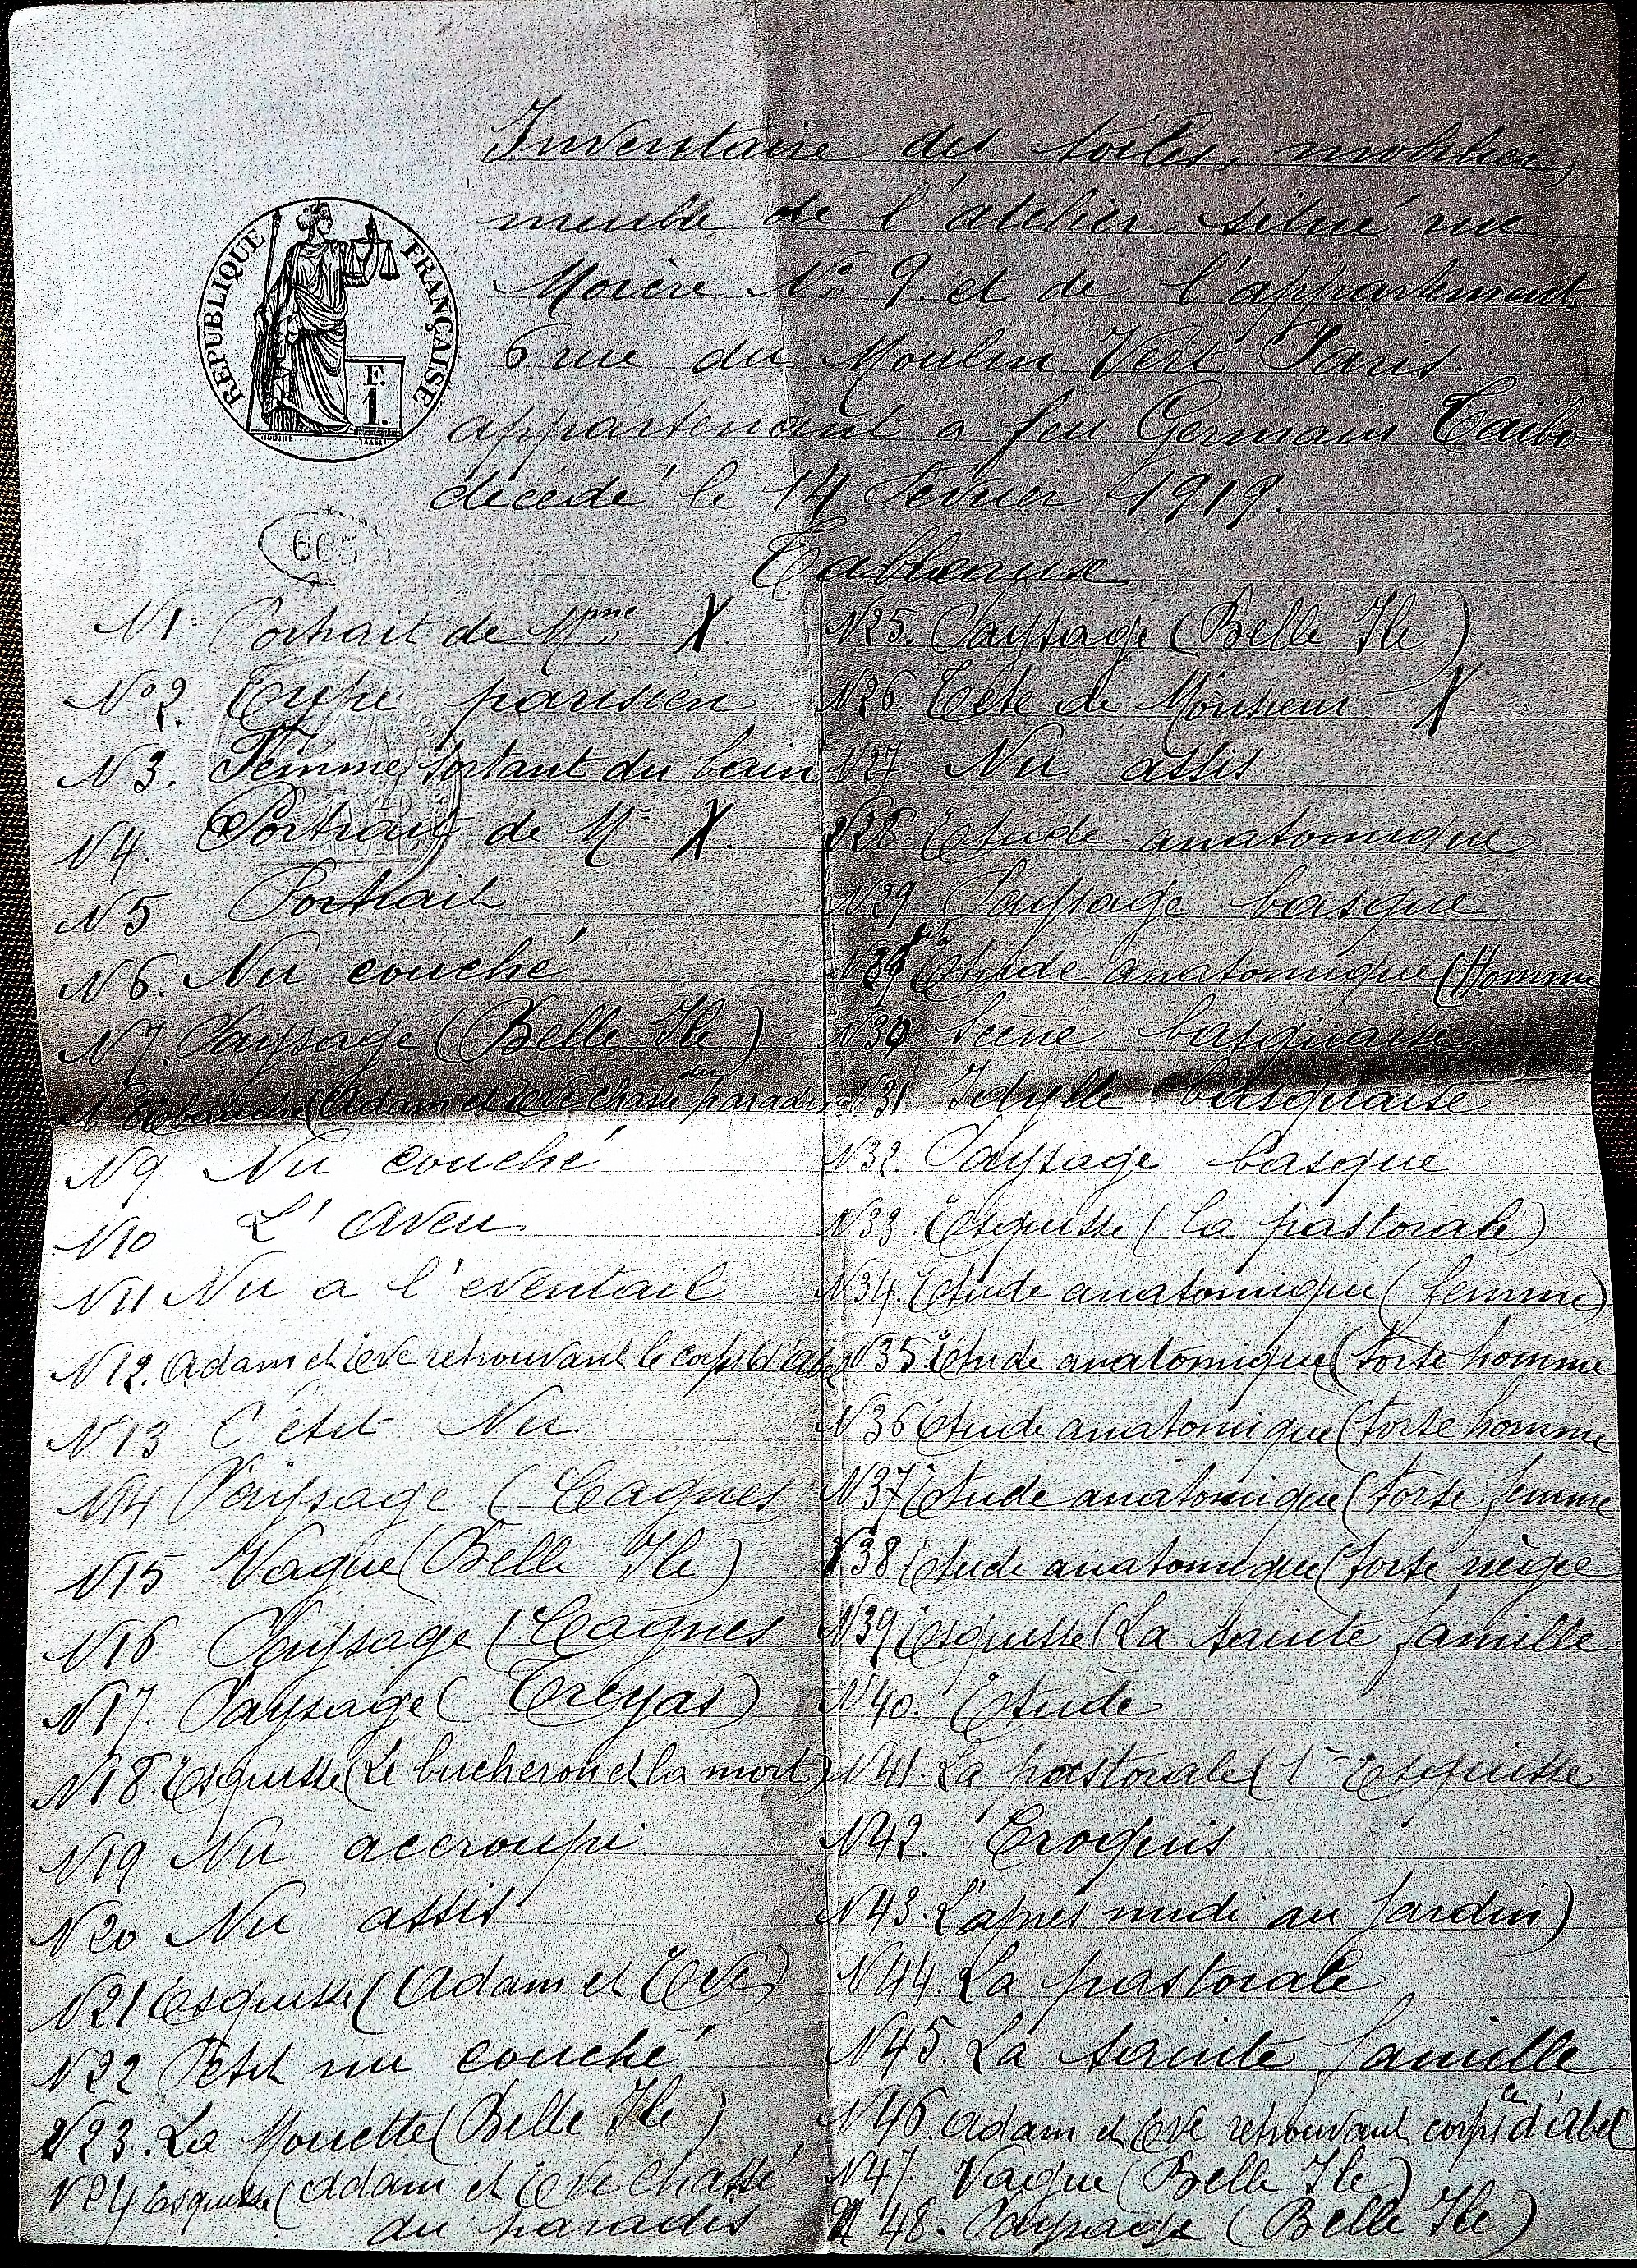 Inventaire des toiles, mobilier,
meuble de l'atelier situé rue
Morère No 9 et de l'appartement
6 rue du Moulin Vert Paris.
appartenant a feu Germain Taibo
décédé le 14 Février 1919.
REPUBLIQUE FRANÇAISE
F.
1.
Tableaux
N1. Portrait de Mme X.
No 2. Type parisien
N3. Femme sortant du bain
N4. Portrait de Mr X.
N5 Portrait
N6. Nu couché
N7. Paysage (Belle Ile)
N8 Ebauche (Adam et Eve chassé du paradis
N9 Nu couché
N10 L'aveu
N11 Nu a l'eventail
N12. Adam et Eve retrouvant le corps d'Abel
N13 Petit Nu
N14 Paysage (Cagnes
N15 Vague (Belle Ile)
N16 Paysage (Cagnes
N17. Paysage (Treyas)
N18. Esquisse (Le bucheron et la mort)
N19 Nu accroupi
N20 Nu assis
N21 Esquisse (Adam et Eve)
N22 Petit nu couché
N23. La Mouette (Belle Ile)
N24 Esquisse (Adam et Eve chassé
du paradis
N25. Paysage (Belle Ile)
N26 Tete de Monsieur X.
N27 Nu assis
N28 Etude anatomique
N29 Paysage basque
N29 bis Etude anatomique (Homme
N30 Scène basquaise
N31 Idylle basquaise
N32. Paysage basque
N33. Esquisse (la pastorale)
N34. Etude anatomique (femme)
N35 Etude anatomique (torse homme
N36 Etude anatomique (torse homme
N37 Etude anatomique (torse femme
N38 Etude anatomique (torse nègre
N39 Esquisse (La sainte famille
N40. Etude
N41. La pastorale (1re Esquisse
N42. Croquis
N43. L'apres midi au jardin)
N44. La pastorale
N45. La sainte famille
N46. Adam et Eve retrouvant le corps d'Abel
N47. Vague (Belle Ile)
N48. Paysage (Belle Ile)